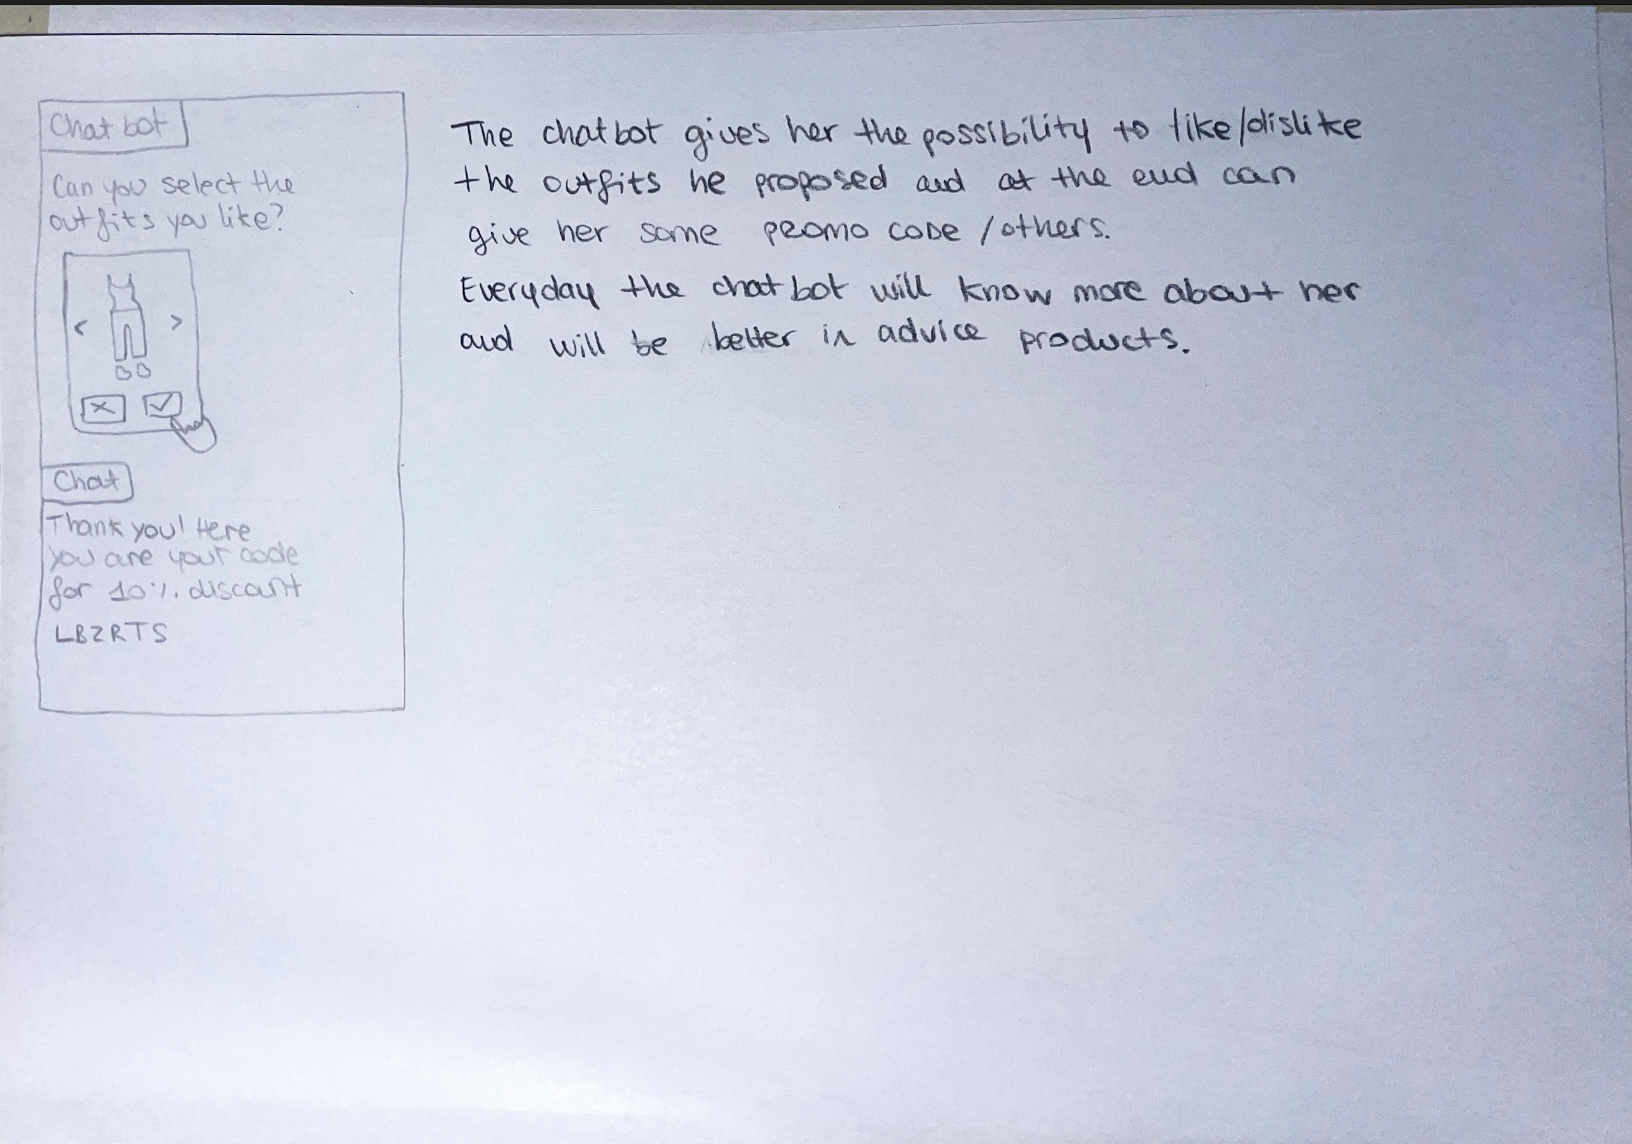 Chat bot
Can you select the
outfits you like?
Chat
Thank you! Here
you are your code
for 10% discount
LBZRTS
The chatbot gives her the possibility to like/dislike
the outfits he proposed and at the end can
give her some promo code / others.
Everyday the chatbot will know more about her
and will be better in advice products.